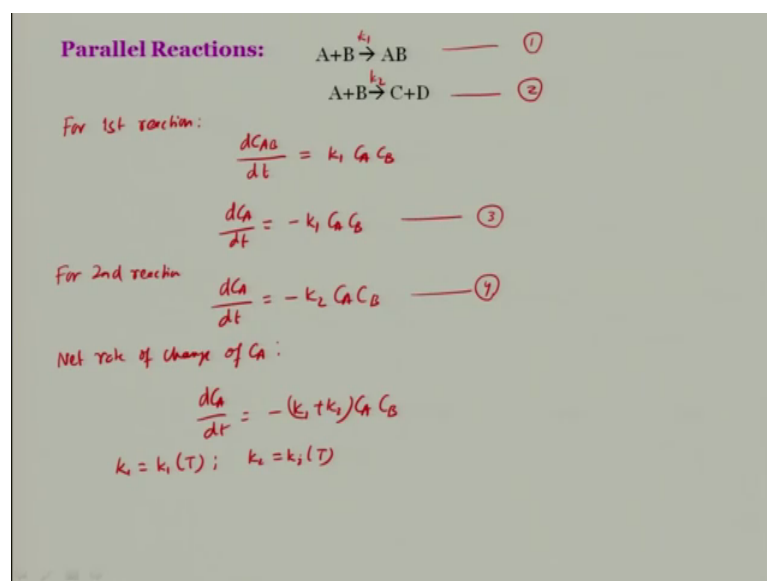 Parallel Reactions: A+B →k₁ AB —— ①
A+B →k₂ C+D —— ②
For 1st reaction:
dC_AB/dt = k₁ C_A C_B
dC_A/dt = - k₁ C_A C_B —— ③
For 2nd reaction
dC_A/dt = - k₂ C_A C_B —— ④
Net rate of change of C_A :
dC_A/dt = - (k₁ + k₂) C_A C_B
k₁ = k₁ (T) ; k₂ = k₂ (T)